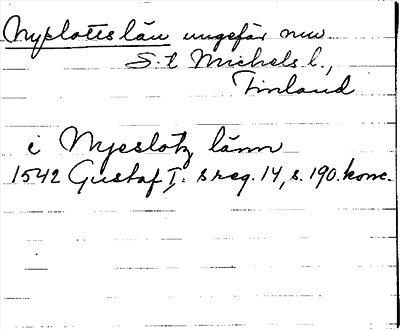 Nyslottslän ungefär nuv.
S:t Michels l.,
Finland
i Nyeslotz länn
1542 Gustaf I:s reg. 14, s. 190. konc.